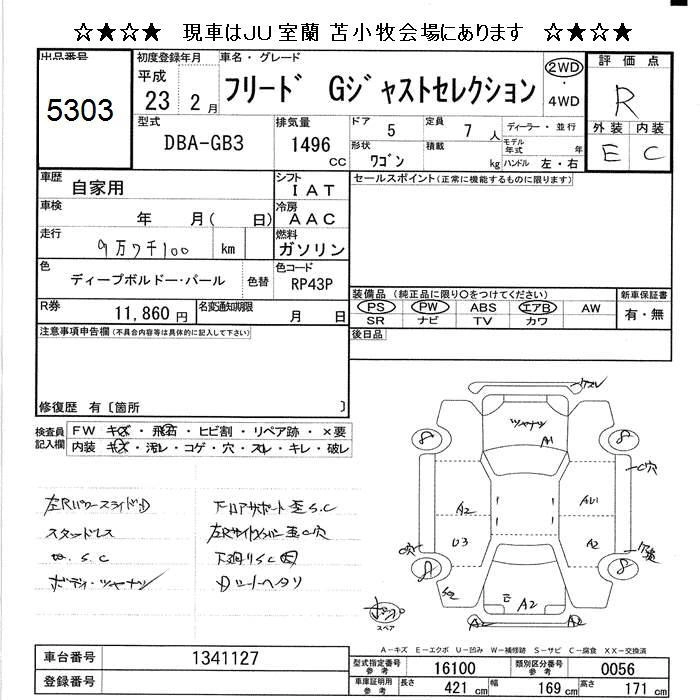 ☆★☆★ 現車はJU室蘭 苫小牧会場にあります ☆★☆★
出品番号
5303
初度登録年月
平成
23 2 月
車名・グレード
フリード Gジャストセレクション
2WD
・
4WD
評価点
R
外装 内装
E C
型式
DBA-GB3
排気量
1496
CC
ドア
5
定員
7 人
ディーラー・並行
モデル年式 年
形状
ワゴン
積載
kg
ハンドル 左・右
車歴
自家用
シフト
IAT
セールスポイント(正常に機能するものに限ります)
車検
年 月( 日)
冷房
AAC
走行
9万7千100 km
燃料
ガソリン
色
ディープボルドー・パール
色替
色コード
RP43P
装備品 (純正品に限り○をつけてください)
PS PW ABS エアB AW
SR ナビ TV カワ
新車保証書
有・無
R券
11,860 円
名変通知期限
月 日
後日品
注意事項申告欄(不具合内容等は具体的に記入して下さい)
修復歴 有〔箇所 〕
検査員
記入欄
FW キズ・飛石・ヒビ割・リペア跡・×要
内装 キズ・汚レ・コゲ・穴・スレ・キレ・破レ
左RパワースライドD
スタッドレス
下回りS.C
ボディ・ツヤナシ
フロアサポート歪S.C
ツヤナシ
A1
8
8
8
8
C穴
A2
U3
A2
A2
スペア
A-キズ E-エクボ U-凹み W-補修跡 S-サビ C-腐食 XX-交換済
車台番号
1341127
登録番号
型式指定番号
参考
16100
類別区分番号
参考
0056
車庫証明用
参考
長さ
421 cm
幅
169 cm
高さ
171 cm